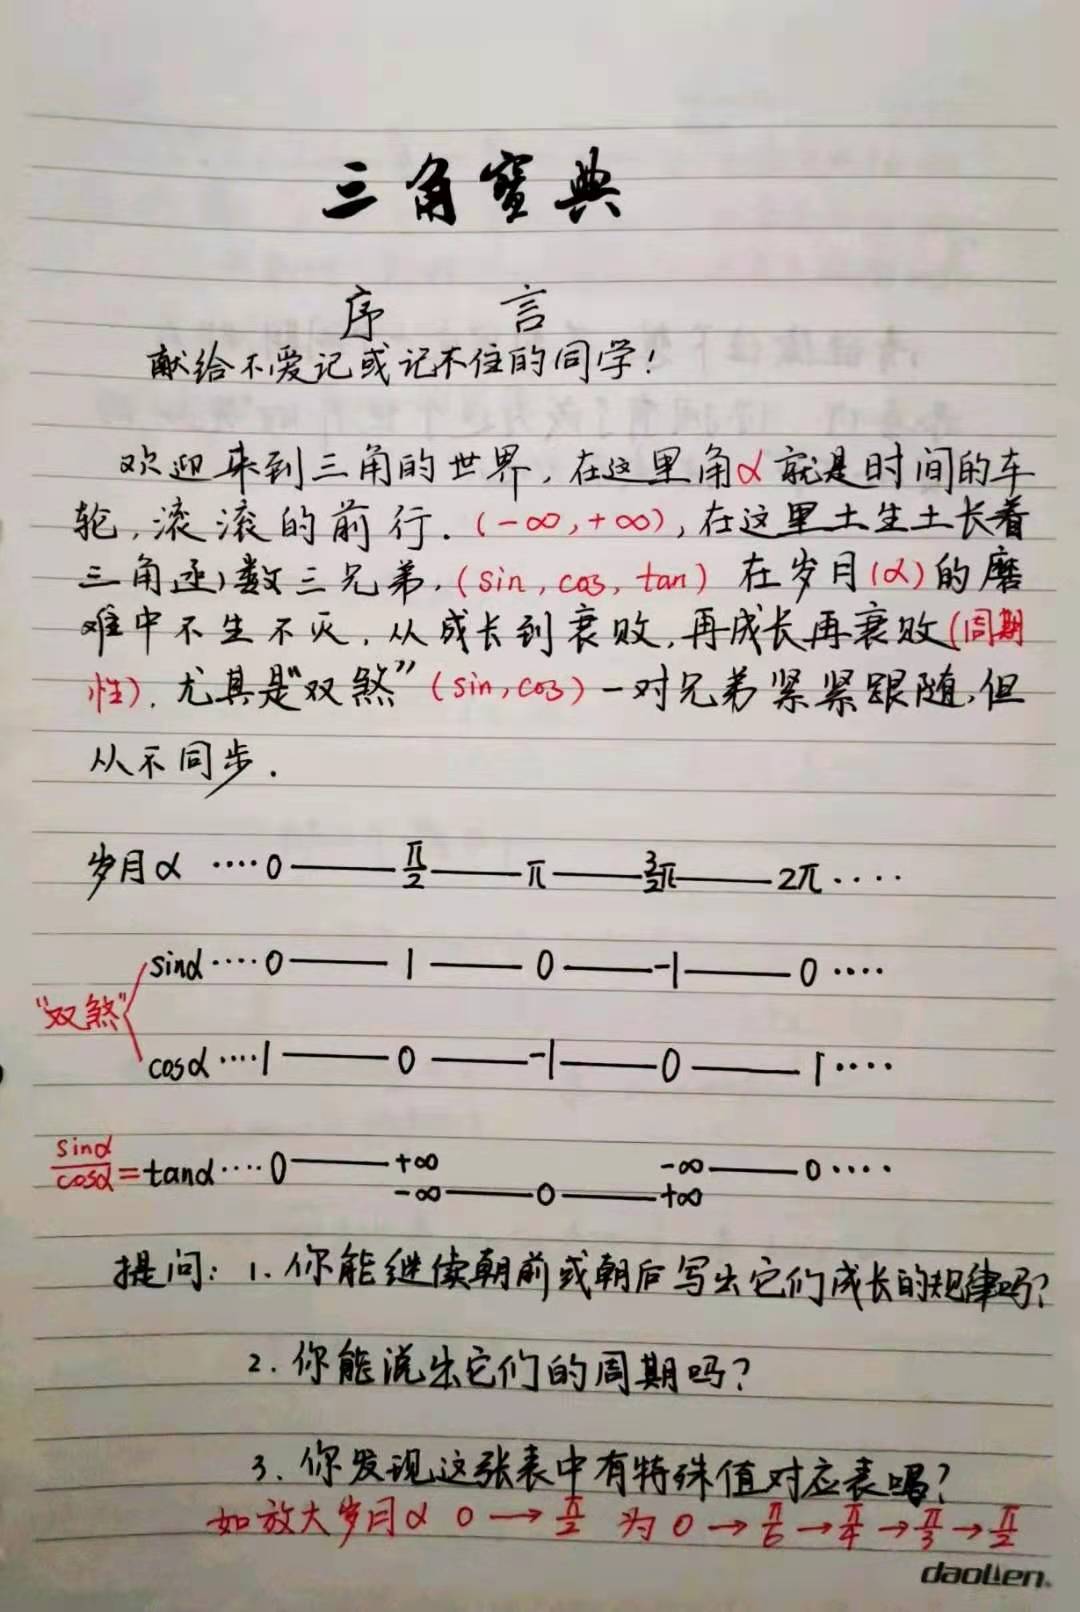 三角宝典
序 言
献给不爱记或记不住的同学!
欢迎来到三角的世界,在这里角α就是时间的车
轮,滚滚的前行.(-∞,+∞),在这里土生土长着
三角函数三兄弟.(sin,cos,tan)在岁月(α)的磨
难中不生不灭,从成长到衰败,再成长再衰败(周期
性).尤其是"双煞"(sin,cos)一对兄弟紧紧跟随,但
从不同步.
岁月α ····0——π/2——π——3/2π——2π····
sinα····0——1——0——-1——0····
"双煞"
cosα····1——0——-1——0——1····
sinα/cosα=tanα····0——+∞ -∞——0····
-∞——0——+∞
提问:1.你能继续朝前或朝后写出它们成长的规律吗?
2.你能说出它们的周期吗?
3.你发现这张表中有特殊值对应表吗?
如放大岁月α 0→π/2 为0→π/6→π/4→π/3→π/2
daolien.